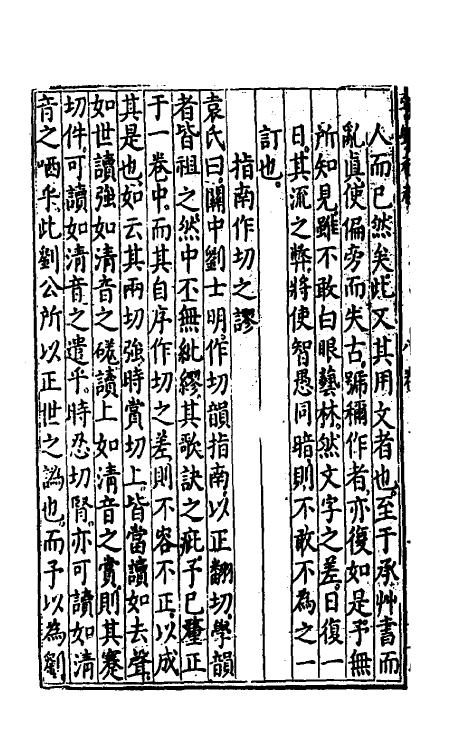 人而已然矣此又其用文者也至于承艸書而
亂真使偏旁而失古號稱作者亦復如是予無
所知見雖不敢白眼藝林然文字之差日復一
日其流之弊將使智愚同暗則不敢不為之一
訂也
指南作切之謬
袁氏曰關中劉士明作切韻指南以正翻切學韻
者皆祖之然中不無紕繆其歌訣之疵予已釐正
于一卷中而其自序作切之差則不容不正以成
其是也如云其兩切強時賞切上皆當讀如去聲
如世讀強如清音之磋讀上如清音之賞則其蹇
切件可讀如清音之遣乎時忍切腎亦可讀如清
音之哂乎此劉公所以正世之譌也而予以為劉